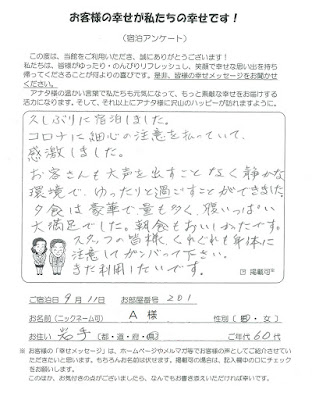 お客様の幸せが私たちの幸せです！
（宿泊アンケート）
この度は、当館をご利用いただき、誠にありがとうございます！
私たちは、皆様がゆったり・のんびりリフレッシュし、笑顔で幸せな思い出を持ち
帰ってくださることが何よりの喜びです。是非、皆様の幸せメッセージをお聞かせ
ください。
アナタ様の温かい言葉で私たちも元気になって、もっと素敵な幸せをお届けする
活力になります。そして、それ以上にアナタ様に沢山のハッピーが訪れますように。
久しぶりに宿泊しました。
コロナに細心の注意を払っていて、
感激しました。
お客さんも大声を出すことなく静かな
環境で、ゆったりと過ごすことができました。
夕食は豪華で量も多く、腹いっぱい
大満足でした。朝食もおいしかったです。
スタッフの皆様、くれぐれも身体に
注意してガンバって下さい。
また利用したいです。
掲載可
ご宿泊日 9月11日 お部屋番号 201
お名前（ニックネーム可） A 様 性別（男・女）
お住い 岩手（都・道・府・県） ご年代 60代
※ お客様の「幸せメッセージ」は、ホームページやメルマガ等でお客様の声としてご紹介させてい
ただきたいと思います。もちろんお名前は伏せます。掲載可の場合は、記入欄中の口にチェック
をお願いします。
このほか、お気付きの点がございましたら、なんでもお書き添えいただければ幸いです。